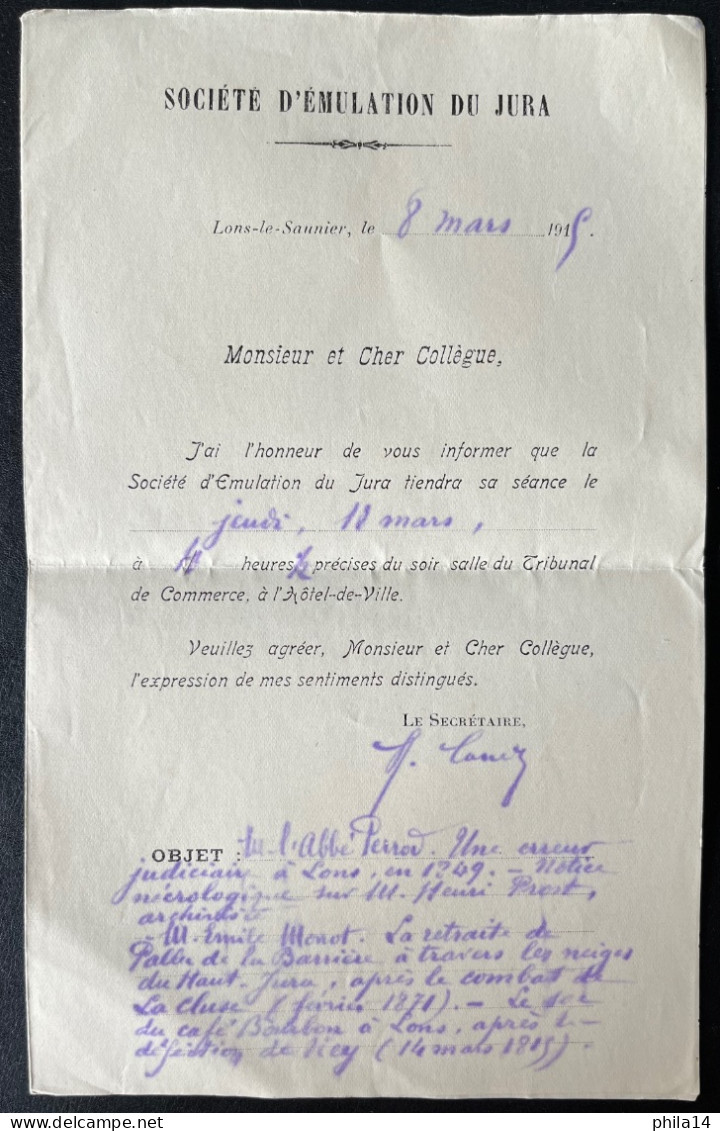 SOCIÉTÉ D'ÉMULATION DU JURA
Lons-le-Saunier, le 8 mars 1915.
Monsieur et Cher Collègue,
J'ai l'honneur de vous informer que la
Société d'Emulation du Jura tiendra sa séance le
jeudi, 18 mars,
à heures ½ précises du soir salle du Tribunal
de Commerce, à l'Hôtel-de-Ville.
Veuillez agréer, Monsieur et Cher Collègue,
l'expression de mes sentiments distingués.
LE SECRÉTAIRE,
OBJET : M. l'Abbé Perrod. Une erreur
judiciaire à Lons, en 1349. – Notice
nécrologique sur M. Henri Prost,
archiviste
– M. Emile Monot. La retraite de
Pallu de la Barrière à travers les neiges
du Haut-Jura, après le combat de
La Cluse (février 1871). – Le sac
du café Bourbon à Lons, après la
défection de Ney (14 mars 1815).
phila14